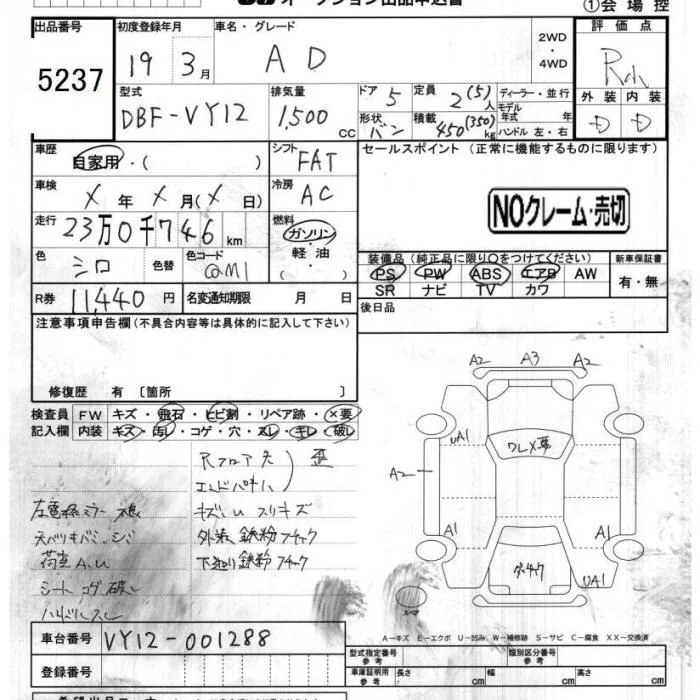 オークション出品申込書
①会場控
出品番号
5237
初度登録年月
19 3月
車名・グレード
AD
2WD
・
4WD
評価点
外装 内装
D D
型式
DBF-VY12
排気量
1,500 cc
ドア 5
形状 バン
定員 2(5)人
積載 450(350)kg
ディーラー・並行
モデル年式 年
ハンドル 左・右
車歴
自家用・( )
シフト
FAT
セールスポイント (正常に機能するものに限ります)
車検
X年 X月(X日)
冷房
AC
NOクレーム・売切
走行
23万0千746km
燃料
ガソリン
・
軽油
・
( )
色
シロ
色替
色コード
@M1
装備品(純正品に限り○をつけてください)
PS PW ABS エアB AW
SR ナビ TV カワ
新車保証書
有・無
R券
11,440円
名変通知期限 月 日
後日品
注意事項申告欄(不具合内容等は具体的に記入して下さい)
修復歴 有〔箇所 〕
検査員
記入欄
FW キズ・飛石・ヒビ割・リペア跡・×要
内装 キズ・汚レ・コゲ・穴・スレ・キレ・破レ
Rフロア先
歪
キズ U スリキズ
外装 鉄粉ブチャック
荷室 A.U
シート コゲ 破レ
ハンドルスレ
A2 A3 A2
UA1
ワレX要
A2
A1 A1
UA1
スペア
車台番号
VY12-001288
登録番号
A-キズ E-エクボ U-凹み W-補修跡 S-サビ C-腐食 XX-交換済
型式指定番号
参考
類別区分番号
参考
車庫証明用
参考
長さ cm 幅 cm 高さ cm